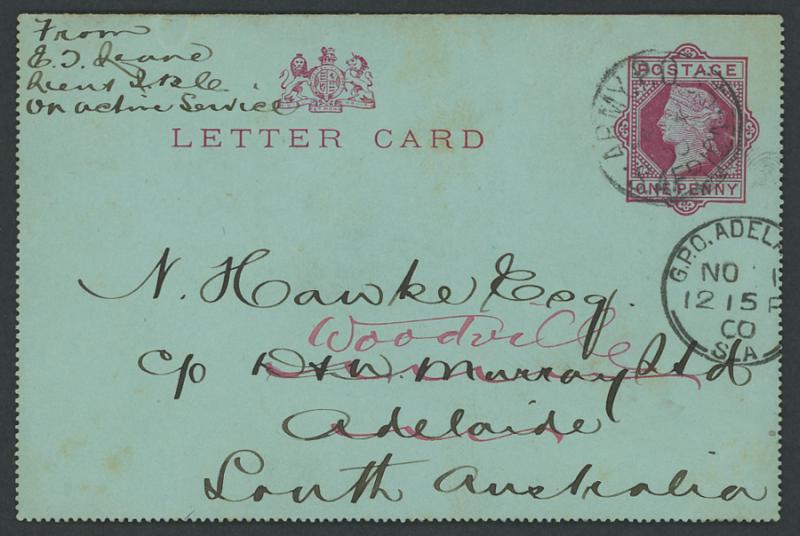 From
On active Service
LETTER CARD
POSTAGE
ONE PENNY
ARMY
G.P.O. ADELA
NO 1
12 15 P
CO
S.A
N. Hawke Esq.
Woodville
c/o D & W. Murray Ltd
Adelaide
South Australia